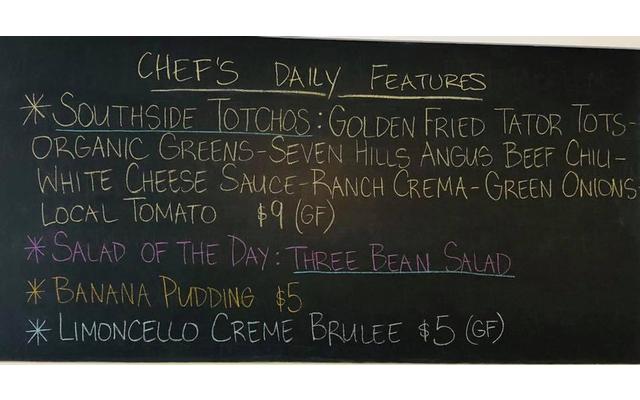 CHEF'S DAILY FEATURES
* SOUTHSIDE TOTCHOS: GOLDEN FRIED TATOR TOTS-
ORGANIC GREENS-SEVEN HILLS ANGUS BEEF CHILI-
WHITE CHEESE SAUCE-RANCH CREMA-GREEN ONIONS
LOCAL TOMATO $9 (GF)
* SALAD OF THE DAY: THREE BEAN SALAD
* BANANA PUDDING $5
* LIMONCELLO CREME BRULEE $5 (GF)